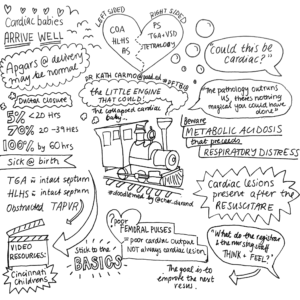 Cardiac babies
ARRIVE WELL
Apgars @ delivery
may be normal
Ductus closure
5% <20 HRS
70% 20-39HRS
100% by 60hrs
Sick @ birth
TGA c̄ intact septum
HLHS c̄ intact septum
Obstructed TAPVR
VIDEO
RESOURCES:
Cincinnati
Childrens
LEFT SIDED
COA
HLHS
AS
RIGHT SIDED
PS
TGA+VSD
TETRALOGY
DR KATH CARMO
the LITTLE ENGINE
THAT COULD:
The collapsed cardiac
baby
Stick to the
BASICS
poor
FEMORAL PULSES
= poor cardiac output
NOT always cardiac lesion
The goal is to
improve the next
resus.
"Could this be
cardiac?"
"The pathology outruns
us, there's nothing
magical you could have
done"
BEWARE
METABOLIC ACIDOSIS
that precedes
RESPIRATORY DISTRESS
Cardiac lesions
present after the
RESUSCITARE
"What do the registrar
& the nursing staff
THINK + FEEL?"